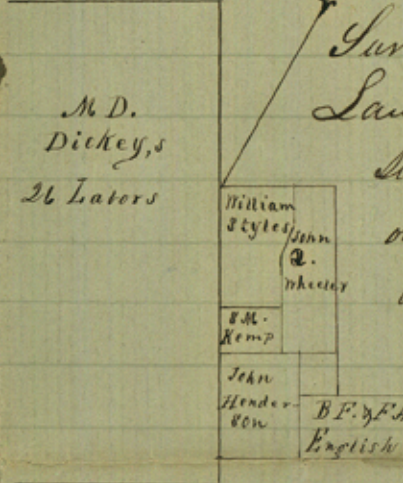 M D.
Dickey,s
26 Labors
William
Styles
John
Q.
Wheeler
S M.
Kemp
John
Hender-
son
B F. & F
English
Sur